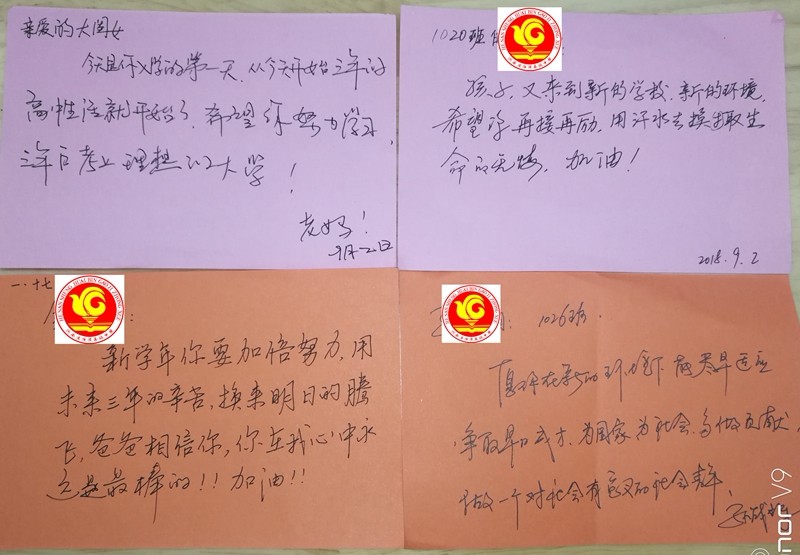 亲爱的大闺女
今天是你入学的第一天,从今天开始三年的
高中生活就开始了,希望你努力学习,
三年后考上理想的大学!
老妈!
9月2日
1020班
孩子,又来到新的学校,新的环境,
希望你再接再励,用汗水去换取生
命的无悔,加油!
2018.9.2
一.十七
新学年你要加倍努力,用
未来三年的辛苦,换来明日的腾
飞,爸爸相信你,你在我心中永
远是最棒的!!加油!!
1026班.
在新的环境下能尽早适应
争取早日成才,为国家为社会多做贡献,
做一个对社会有意义的社会青年.
nor V9